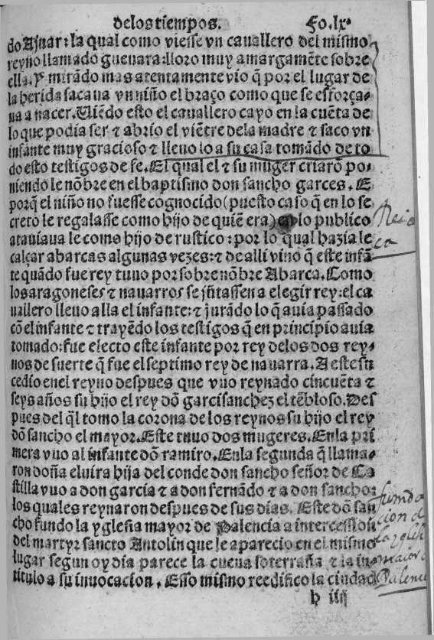 delos tiempos. Fo. lx.
do Aznar: la qual como viesse vn cauallero del mismo
reyno llamado gueuara: lloro muy amargamēte sobre
ella. y mirādo mas atentamente vio q̄ por el lugar de
la herida sacaua vn niño el braço como que se esforça-
ua a nacer. Uiēdo esto el cauallero cayo en la cuēta de
lo que podia ser ⁊ abrio el viētre dela madre ⁊ saco vn
infante muy gracioso ⁊ lleuo lo a su casa tomādo de to
do esto testigos de fe. El qual el ⁊ su muger criarō po-
niendo le nōbre en el baptismo don sancho garces. E
porq̄ el niño no fuesse cognocido (puesto caso q̄ en lo se
creto le regalasse como hijo de quiē era) lo publico
atauiaua le como hijo de rustico: por lo qual hazia le
calçar abarcas algunas vezes: ⁊ de alli vino q̄ este infā
te quādo fue rey tuuo por sobre nōbre Abarca. Como
los aragoneses ⁊ nauarros se jūtassen a elegir rey: el ca
uallero lleuo alla el infante: ⁊ jurādo lo q̄ auia passado
cō el infante ⁊ trayēdo los testigos q̄ en principio auia
tomado: fue electo este infante por rey delos dos rey-
nos de suerte q̄ fue el septimo rey de nauarra. A este su
cedio en el reyno despues que vuo reynado cincuēta ⁊
seys años su hijo el rey dō garcisanchez el tēbloso. Des
pues del q̄l tomo la corona de los reynos su hijo el rey
dō sancho el mayor. Este tuuo dos mugeres. En la pri
mera vuo al infante dō ramiro. En la segunda q̄ llama-
ron doña eluira hija del conde don sancho señor de Ca
stilla vuo a don garcia ⁊ a don fernādo ⁊ a don sancho:
los quales reynaron despues de sus dias. Este dō san
cho fundo la yglesia mayor de Palencia a intercession
del martyr sancto Antolin que le aparecio en el mismo
lugar segun oy dia parece la cueua soterraña ⁊ la in
titulo a su inuocacion. Esso mismo reedifico la ciudad
h iiij
fundo
cion d
mayor
Palenc